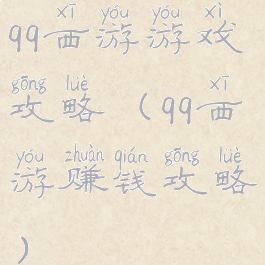 xī yóu yóu xì
99西游游戏
gōng lüè xī
攻略（99西
yóu zhuàn qián gōng lüè
游赚钱攻略
）